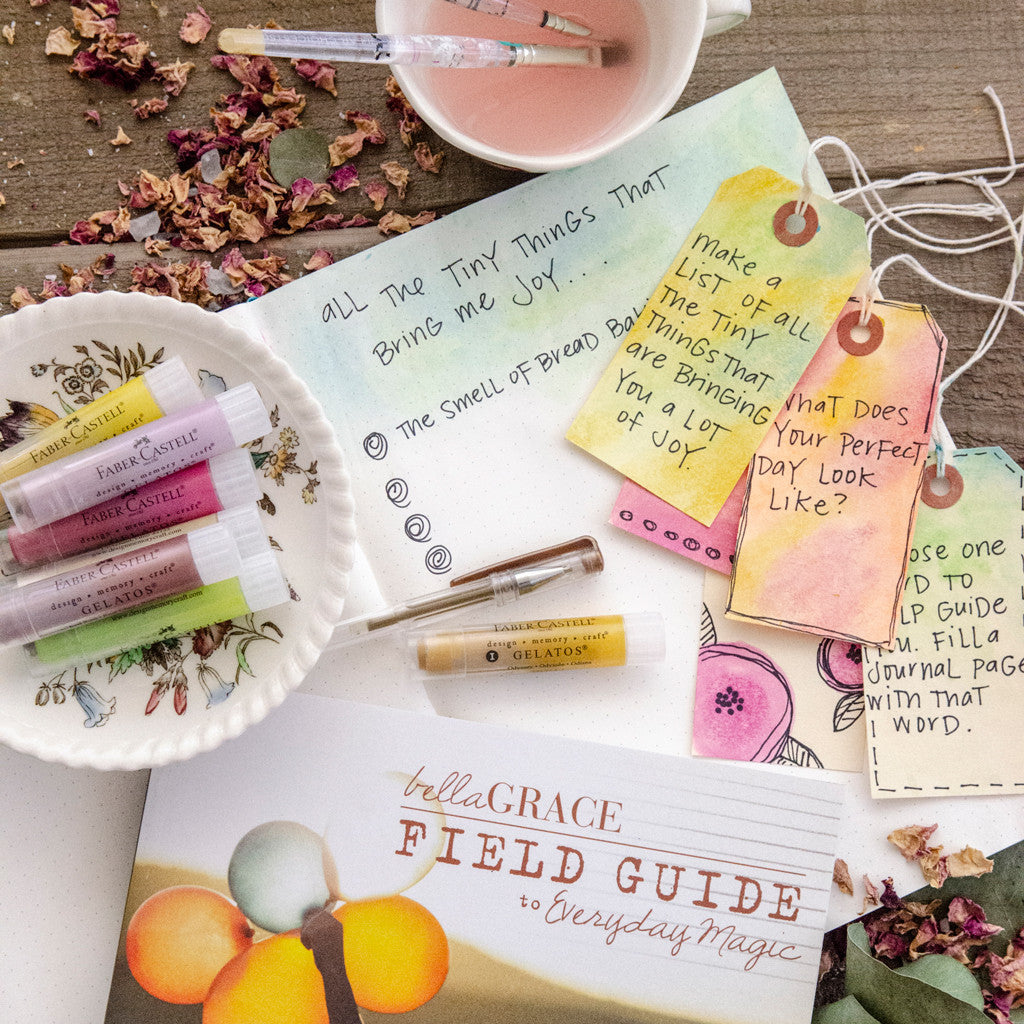 ALL THE TINY THINGS THAT
BRING ME JOY...
THE SMELL OF BREAD
MAKE A
LIST OF ALL
THE TINY
THINGS THAT
ARE BRINGING
YOU A LOT
OF JOY.
WHAT DOES
YOUR PERFECT
DAY LOOK
LIKE?
ONE
TO
GUIDE
FILL A
JOURNAL PAGE
WITH THAT
WORD.
FABER CASTELL
FABER CASTELL
design • memory • craft®
FABER CASTELL
design • memory • craft®
FABER CASTELL
design • memory • craft®
GELATOS®
design memory craft®
FABER CASTELL
design • memory • craft®
1 GELATOS®
bellaGRACE
FIELD GUIDE
to Everyday Magic